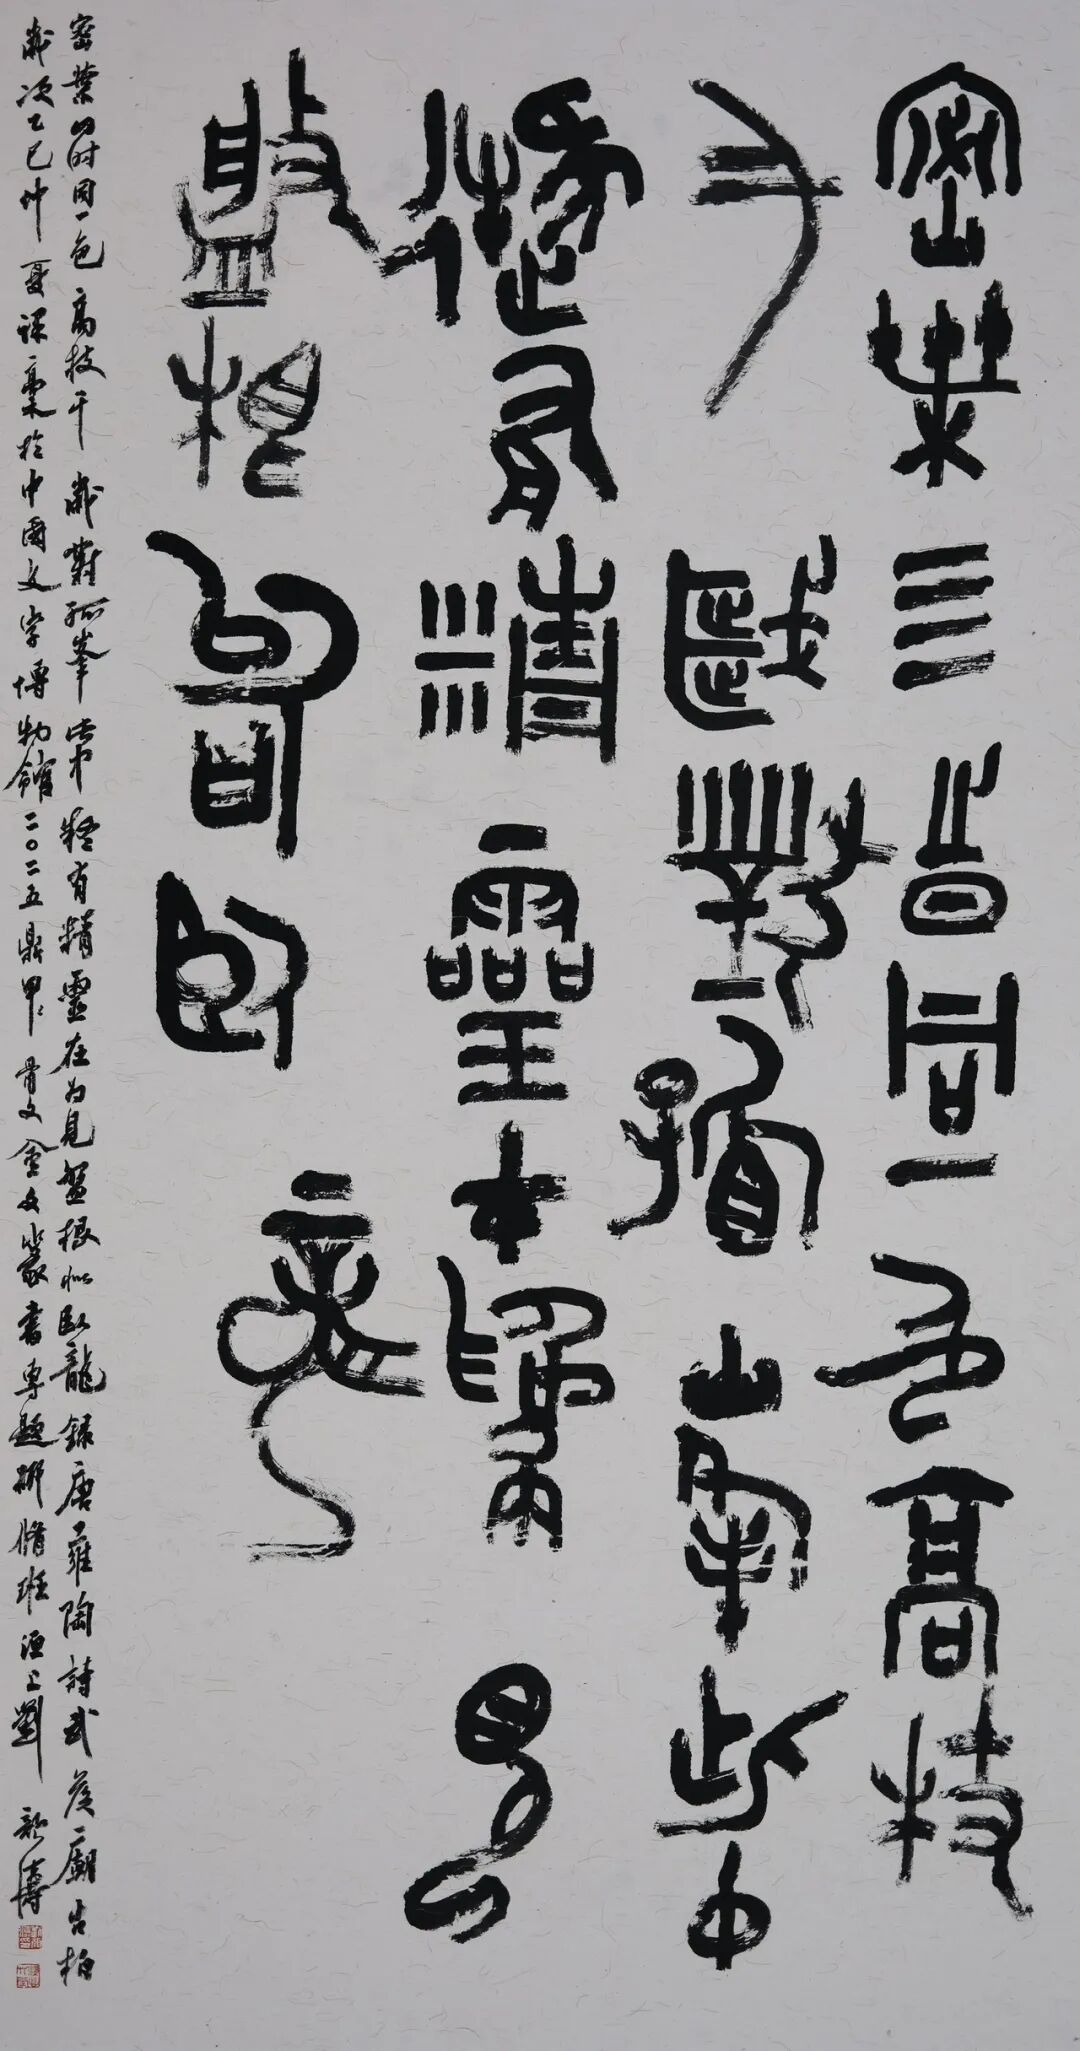 密葉四時同一色高枝
千歲對孤峯此中
疑有精靈在為見
盤根似臥龍
密葉四時同一色高枝千歲對孤峯此中疑有精靈在为見盤根似臥龍録唐雍陶詩武侯廟古柏
歲次乙巳仲夏課稾於中國文字博物館二〇二五鼎甲甲骨文金文篆書專題研脩班洹上劉